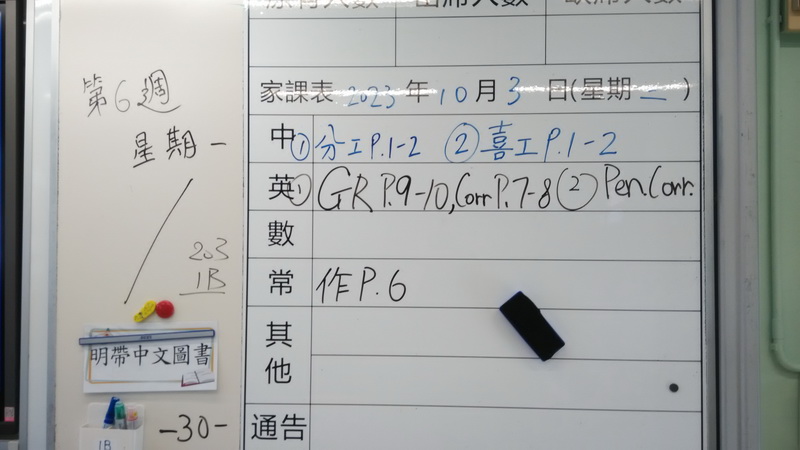 第6週
星期一
203
1B
明帶中文圖書
1B
-30-
原有人數 出席人數 缺席人數
家課表 2023 年 10 月 3 日(星期 二 )
中 ①分工P.1-2 ②喜工P.1-2
英 ①GR P.9-10, Corr P.7-8 ② Pen Corr.
數
常 作P.6
其他
通告